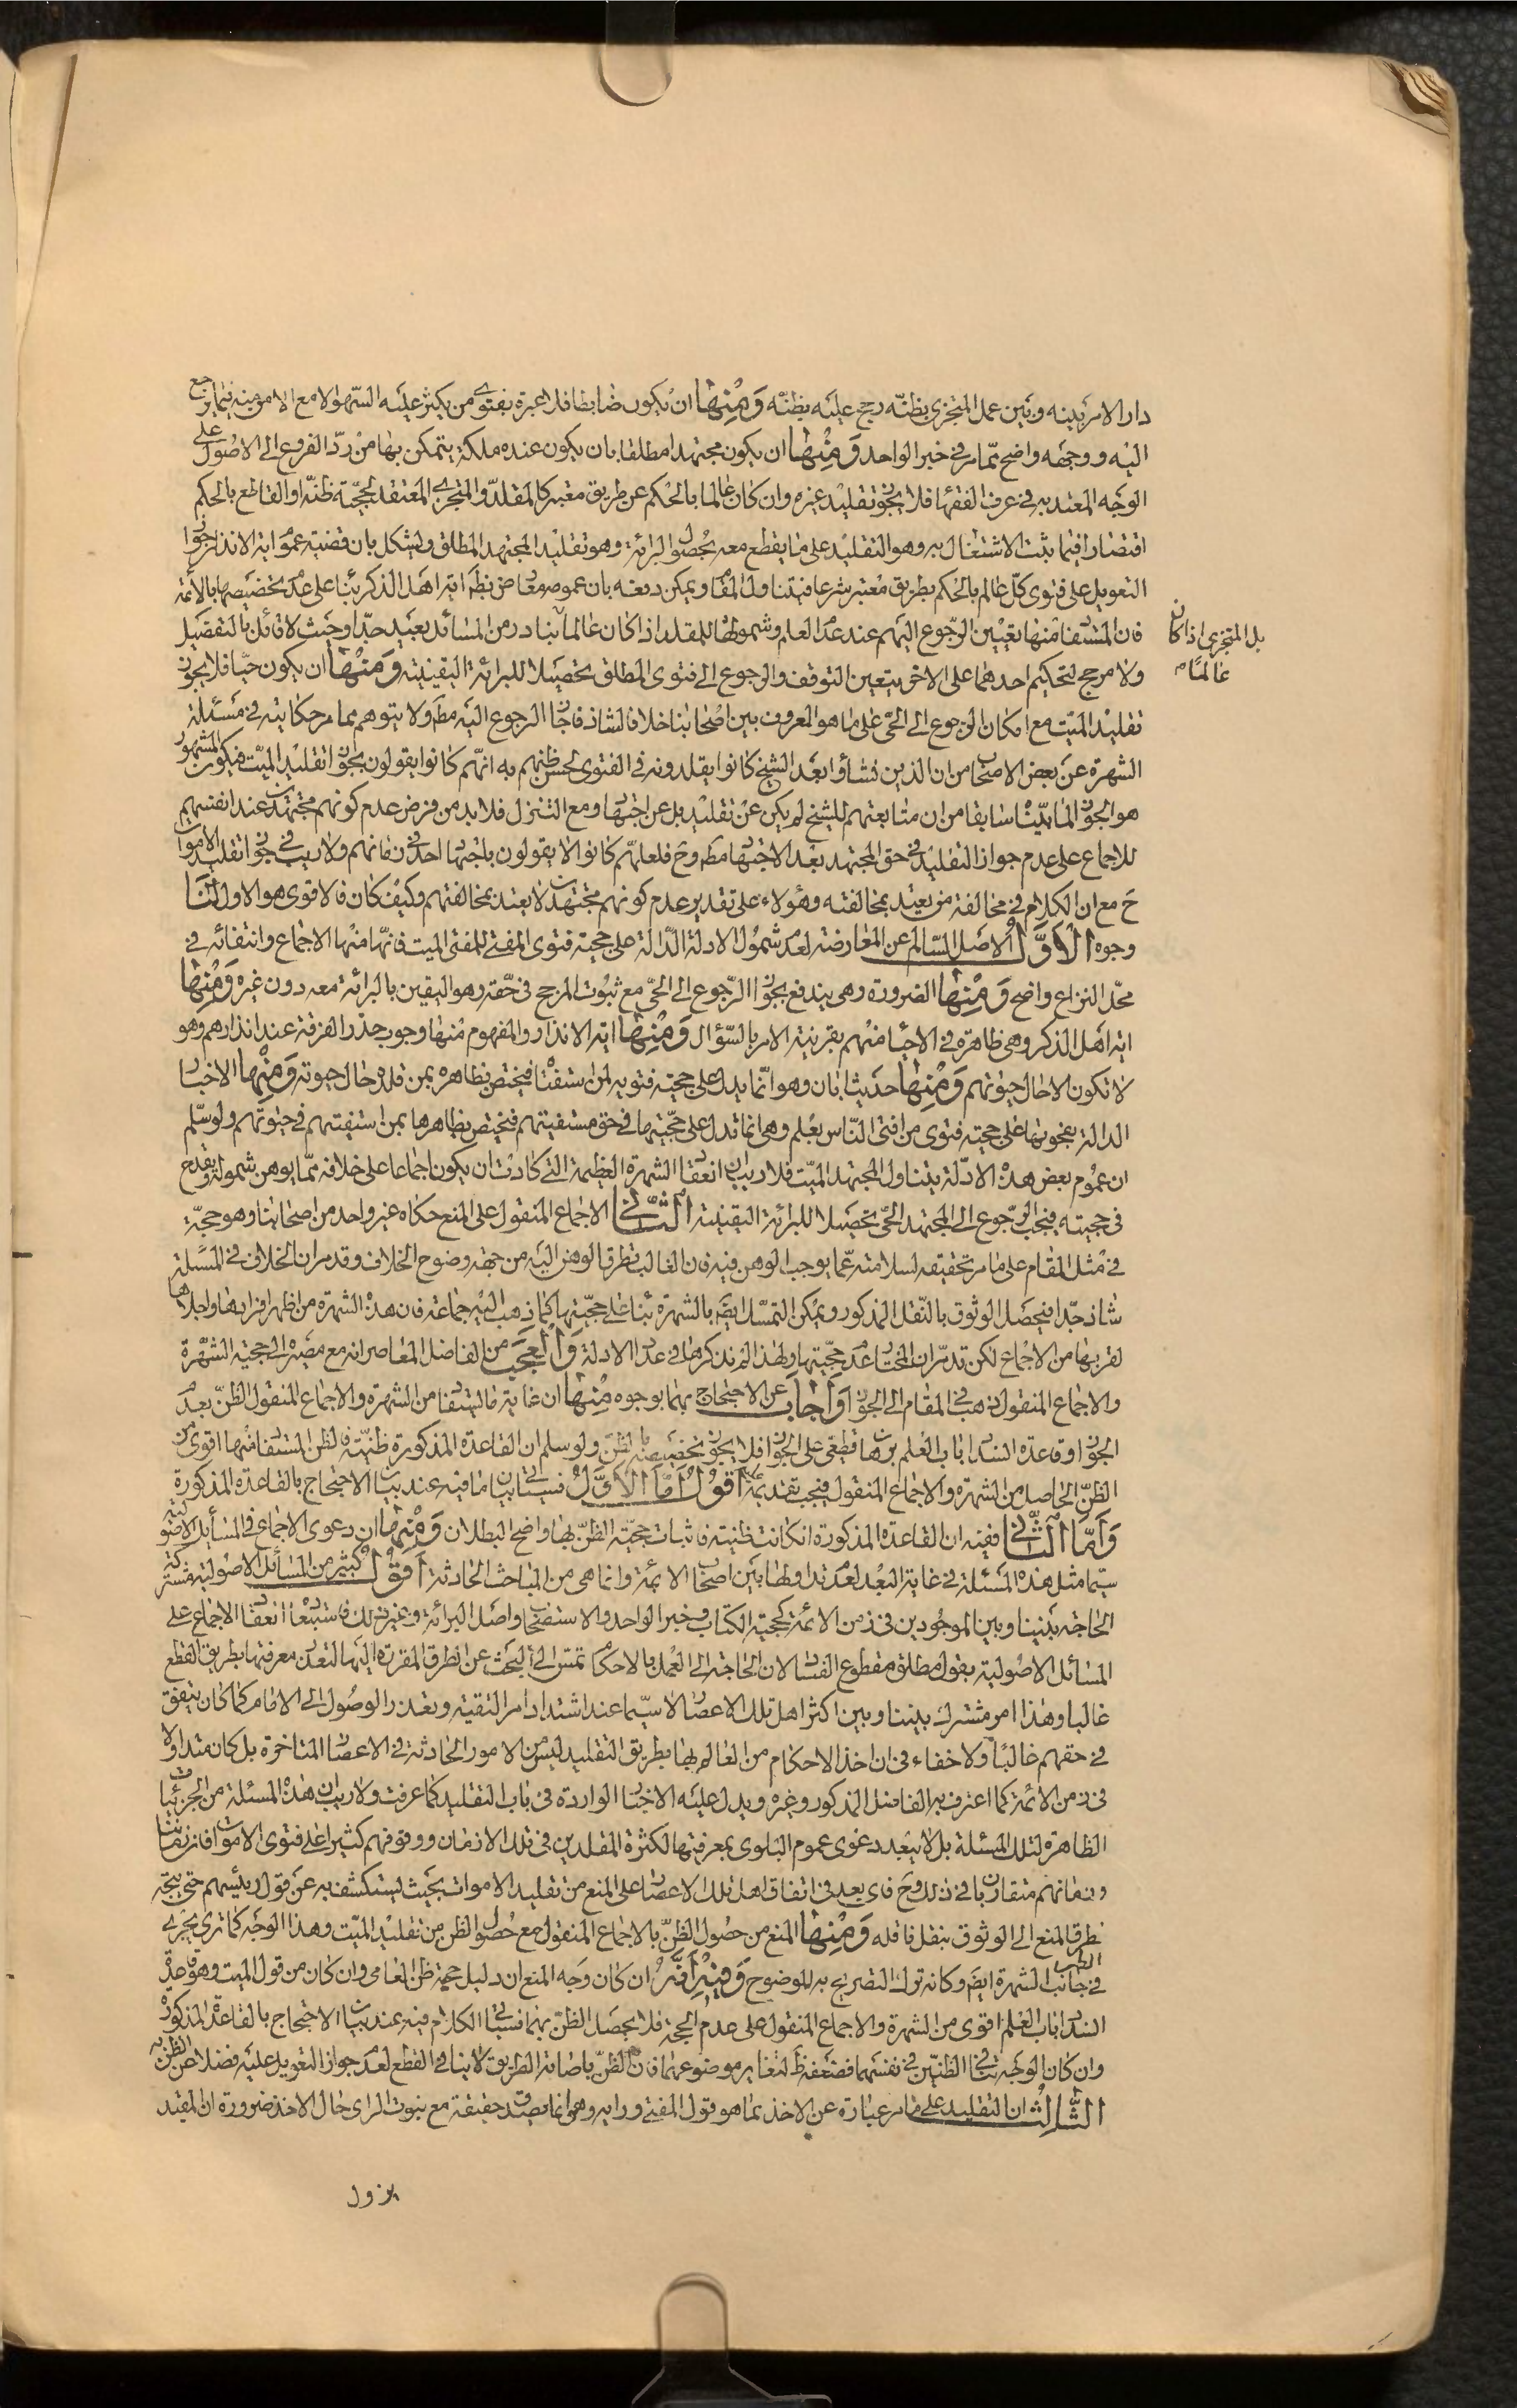 دار الامر بينه وبين عمل المتجزى بظنّه رجح عليه بظنّه ومنها ان يكون ضابطا فلا عبرة بفتوى من يكثر عليه السّهو الا مع الامن منه فيما يرجع
اليه ووجهه واضح ممّا مر فى خبر الواحد ومنها ان يكون مجتهدا مطلقا بان يكون عنده ملكة يتمكن بها من ردّ الفروع الى الاصُول على
الوجه المعتد به فى عرف الفقهاء فلا يجوز تقليد غيره وان كان عالما بالحكم عن طريق معتبر كالمقلد والمتجزى المعتقد لحجّية ظنّه او القاطع بالحكم
اقتصارا فيما يثبت الاشتغال به وهو التقليد على ما يقطع معه بحصول البرائة وهو تقليد المجتهد المطلق ويشكل بان قضية عموم اية الانذار جواز
التعويل على فتوى كلّ عالم بالحكم بطريق معتبر شرعا فيتناول المقام ويمكن دفعه بان عمومه معارض بظاهر اية اهل الذكر بناء على عدم تخصيصها بالائمة
فان المستفاد منها تعيين الرّجوع اليهم عند عدم العلم وشمولها للمقلد اذا كان عالما بنادر من المسائل بعيد جدّا وحيث لا قائل بالتفصيل
بل المتجزى اذا كان
عالمًا م
ولا مرجح لتحكيم احدهما على الاخر يتعين التوقف والرجوع الى فتوى المطلق تحصيلا للبرائة اليقينية ومنها ان يكون حيّا فلا يجوز
تقليد الميّت مع امكان الرجوع الى الحىّ على ما هو المعروف بين اصحابنا خلافا لشاذ فاجاز الرجوع اليه مط ولا يتوهم مما مر حكايته فى مسئلة
الشهرة عن بعض الاصحاب من ان الذين نشأوا بعد الشيخ كانوا يقلدونه فى الفتوى لحسن ظنهم به انّهم كانوا يقولون بجواز تقليد الميّت فيكون المشهور
هو الجواز لما بيّنّا سابقا من ان متابعتهم للشيخ لم يكن عن تقليد بل عن اجتهاد ومع التنزل فلا بد من فرض عدم كونهم مجتهدين عند انفسهم
للاجماع على عدم جواز التقليد فى حق المجتهد بعد الاجتهاد مط وح فلعلهم كانوا لا يقولون باجتهاد احد فى زمانهم ولا ريب فى جواز تقليد الاموات
ح مع ان الكلام فى مخالفة من يعتد بمخالفته وهؤلاء على تقدير عدم كونهم مجتهدين لا يعتد بمخالفتهم وكيف كان فالاقوى هو الاول لنا
وجوه الاوّل الاصل السّالم عن المعارضة لعدم شمول الادلة الدّالة على حجية فتوى المفتى للمفتى الميت فانّها منها الاجماع وانتفائه فى
محلّ النزاع واضح ومنها الضرورة وهى يندفع بجواز الرّجوع الى الحىّ مع ثبوت المرجح فى حقّه وهو اليقين بالبرائة معه دون غيره ومنها
اية اهل الذكر وهى ظاهرة فى الاحياء منهم بقرينة الامر بالسّؤال ومنها اية الانذار والمفهوم منها وجوب حذر الفرقة عند انذارهم وهو
لا تكون الا حال حيوتهم ومنها حديث ابان وهو انّما يدل على حجية فتويه لمن استفتاه فيختص بظاهره بمن قلده حال حيوته ومنها الاخبار
الدالة بفحويها على حجية فتوى من افتى النّاس بعلم وهى انما تدل على حجّيتها فى حق مستفتيهم فيختص بظاهرها بمن استفتيهم فى حيوتهم ولو سلّم
ان عموم بعض هذه الادلّة يتناول المجتهد الميّت فلا ريب ان انعقاد الشهرة العظيمة التى كادت ان يكون اجماعا على خلافه ممّا يوهن شموله ويقدح
فى حجيته فيجب الرّجوع الى المجتهد الحىّ تحصيلا للبرائة اليقينية الثانى الاجماع المنقول على المنع حكاه غير واحد من اصحابنا وهو حجيّة
فى مثل المقام على ما مر تحقيقه لسلامته عمّا يوجب الوهن فيه فان الغالب تطرق الوهن اليه من جهة وضوح الخلاف وقد مر ان الخلاف فى المسئلة
شاذ جدّا فيحصل الوثوق بالنّقل المذكور ويمكن التمسّك ايضا بالشهرة بناء على حجّيتها كما ذهب اليه جماعة فان هذه الشهرة من اظهر افرادها واجلاها
لقربها من الاجماع لكن قد مرّ ان المختار عدم حجّيتها ولهذا لم نذكرها فى عداد الادلة والعجب من الفاضل المعاصر انه مع مصيره الى حجية الشّهرة
والاجماع المنقول ذهب فى المقام الى الجواز واجاب عن الاحتجاج بهما بوجوه منها ان غاية ما يستفاد من الشهرة والاجماع المنقول الظنّ بعدم
الجواز وقاعدة انسداد باب العلم برهان قطعى على الجواز فلا يجوز تخصيصه بالظنّ ولو سلم ان القاعدة المذكورة ظنيّة فالظن المستفاد منها اقوى من
الظنّ الحاصل من الشهرة والاجماع المنقول فيجب تقديمه اقول امّا الاوّل فسيأتى بيان ما فيه عند بيان الاحتجاج بالقاعدة المذكورة
وامّا الثّانى ففيه ان القاعدة المذكورة ان كانت ظنية فاثبات حجيّة الظنّ بها واضح البطلان ومنها ان دعوى الاجماع فى المسائل الاصولية
سيّما مثل هذه المسئلة فى غاية البعد لعدم تداولها بين اصحاب الائمة وانما هى من المباحث الحادثة اقول كثير من المسائل الاصولية مشتركة
الحاجة بيننا وبين الموجودين فى زمن الائمة كحجية الكتاب وخبر الواحد والاستصحاب واصل البرائة وغير ذلك فاستبعاد انعقاد الاجماع على
المسائل الاصولية بقول مطلق مقطوع الفساد لان الحاجة الى العمل بالاحكام تمسّ الى البحث عن الطرق المقررة اليها لتعذر معرفتها بطريق القطع
غالبا وهذا امر مشترك بيننا وبين اكثر اهل تلك الاعصار لا سيّما عند اشتداد امر التقية وتعذر الوصول الى الامام كما كان يتفق
فى حقهم غالبًا ولا خفاء فى ان اخذ الاحكام من العالم بها بطريق التقليد ليس من الامور الحادثة فى الاعصار المتاخرة بل كان متداولا
فى زمن الائمة كما اعترف به الفاضل المذكور وغيره ويدل عليه الاخبار الواردة فى باب التقليد كما عرفت ولا ريب ان هذه المسئلة من الجزئيات
الظاهرة لتلك المسئلة بل لا يبعد دعوى عموم البلوى بمعرفتها لكثرة المقلدين فى تلك الازمان ووقوفهم كثيرا على فتوى الاموات فان زماننا
وزمانهم متقاربان فى ذلك وح فاى بعد فى اتفاق اهل تلك الاعصار على المنع من تقليد الاموات بحيث يستكشف به عن قول رئيسهم حتى يتجه
تطرق المنع الى الوثوق بنقل ناقله ومنها المنع من حصول الظنّ بالاجماع المنقول مع حصول الظن من تقليد الميّت وهذا الوجه كما ترى يجرى
فى جانب الشهرة ايضا وكانه ترك التصريح به للوضوح وفيه انّه ان كان وجه المنع ان دليل حجية ظن العامى وان كان من قول الميت وهو قاعدة
انسداد باب العلم اقوى من الشهرة والاجماع المنقول على عدم الحجية فلا يحصل الظنّ بهما فسيأتى الكلام فيه عند بيان الاحتجاج بالقاعدة المذكورة
وان كان الوجه تنافى الظنّين فى نفسهما فضعفه ظ لتغاير موضوعهما فان الظنّ باصابة الطريق لا ينافى القطع لعدم جواز التعويل عليه فضلا عن الظن به
الثّالث ان التقليد على ما مر عبارة عن الاخذ بما هو قول المفتى ورايه وهو انما يصدق حقيقة مع ثبوت الراى حال الاخذ ضرورة ان المقيد
يزول